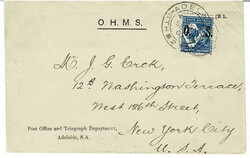 O. H. M. S.
O. S.
Mr. J. G. Crok,
12ª Washington Terrace,
West 186th Street,
New York City
U. S. A.
Post Office and Telegraph Department,
Adelaide, S.A.